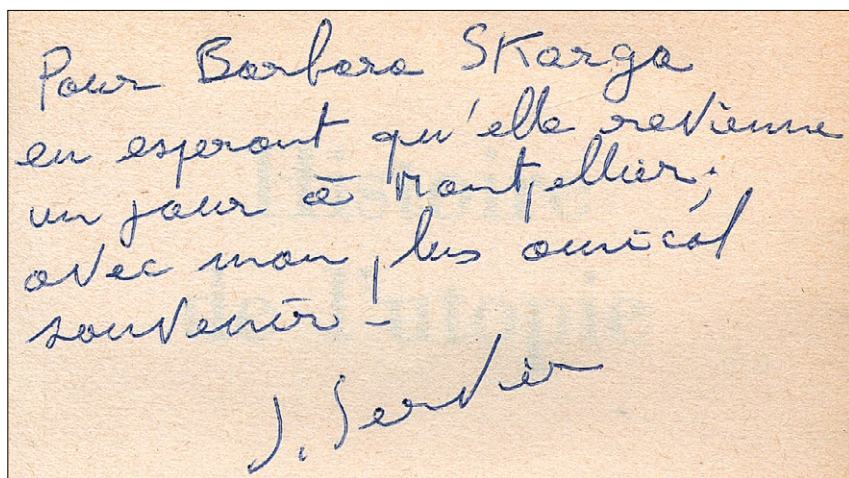 Pour Barbara Skarga
en esperant qu'elle revienne
un jour à Montpellier,
avec mon plus amical
souvenir -
J. Servier